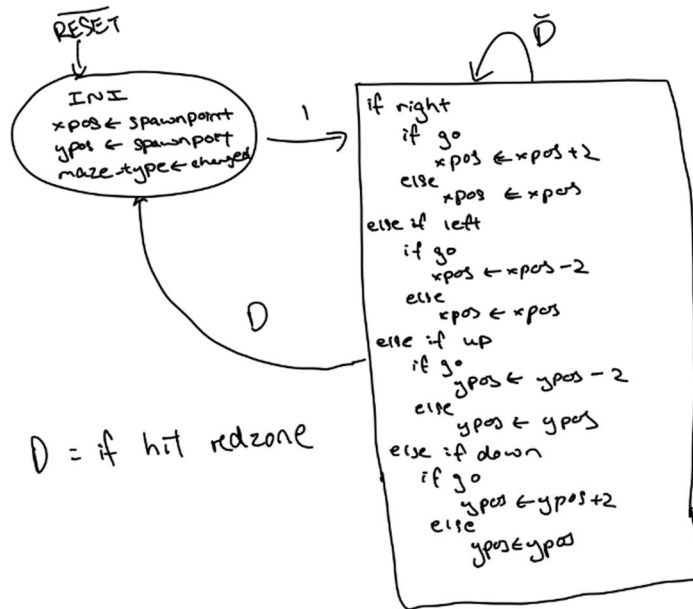 RESET
INI
xpos ← spawnpoint
ypos ← spawnport
maze-type ← changed
1
D̄
if right
if go
xpos ← xpos+2
else
xpos ← xpos
else if left
if go
xpos ← xpos-2
else
xpos ← xpos
else if up
if go
ypos ← ypos-2
else
ypos ← ypos
else if down
if go
ypos ← ypos+2
else
ypos ← ypos
D
D = if hit redzone